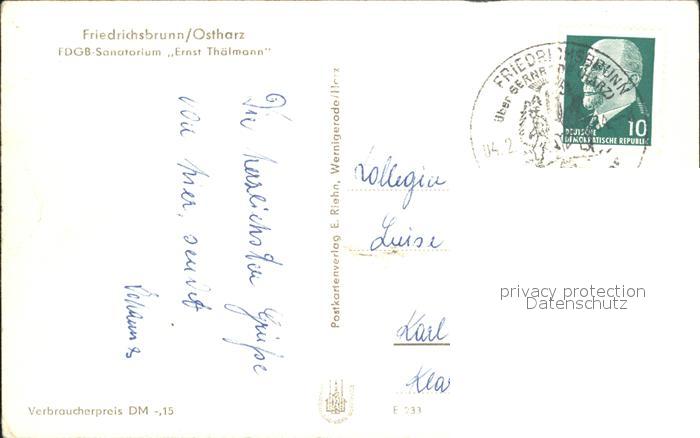 Friedrichsbrunn/Ostharz
FDGB-Sanatorium „Ernst Thälmann"
Die herzlichsten Grüße
von hier, sendet
Postkartenverlag E. Riehn, Wernigerode/Harz
FRIEDRICHSBRUNN
OSTHARZ
über GERNR
04.2
10
DEUTSCHE
DEMOKRATISCHE REPUBLIK
Kollegin
Luise
Karl
Kla
privacy protection
Datenschutz
Verbraucherpreis DM -,15
E 233